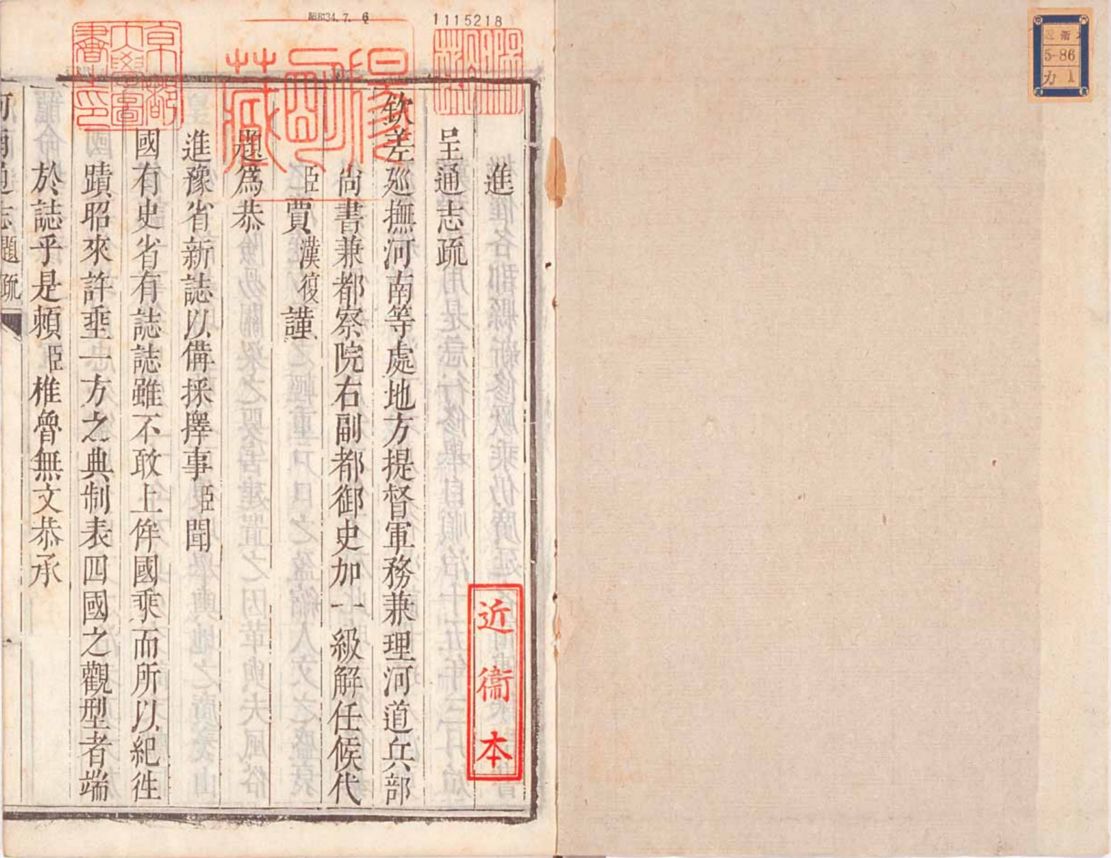 進
呈通志疏
欽差廵撫河南等處地方提督軍務兼理河道兵部
尚書兼都察院右副都御史加一級解任候代
臣賈漢復謹
題爲恭
進豫省新誌以備採擇事臣聞
國有史省有誌誌雖不敢上侔國乘而所以紀徃
蹟昭來許埀一方之典制表四國之觀型者端
於誌乎是頼臣椎魯無文恭承
河南通志 題疏
一
近衞本
京都大學圖書之印
陽明藏
昭和34.7.6
1115218
5-86
カ 1